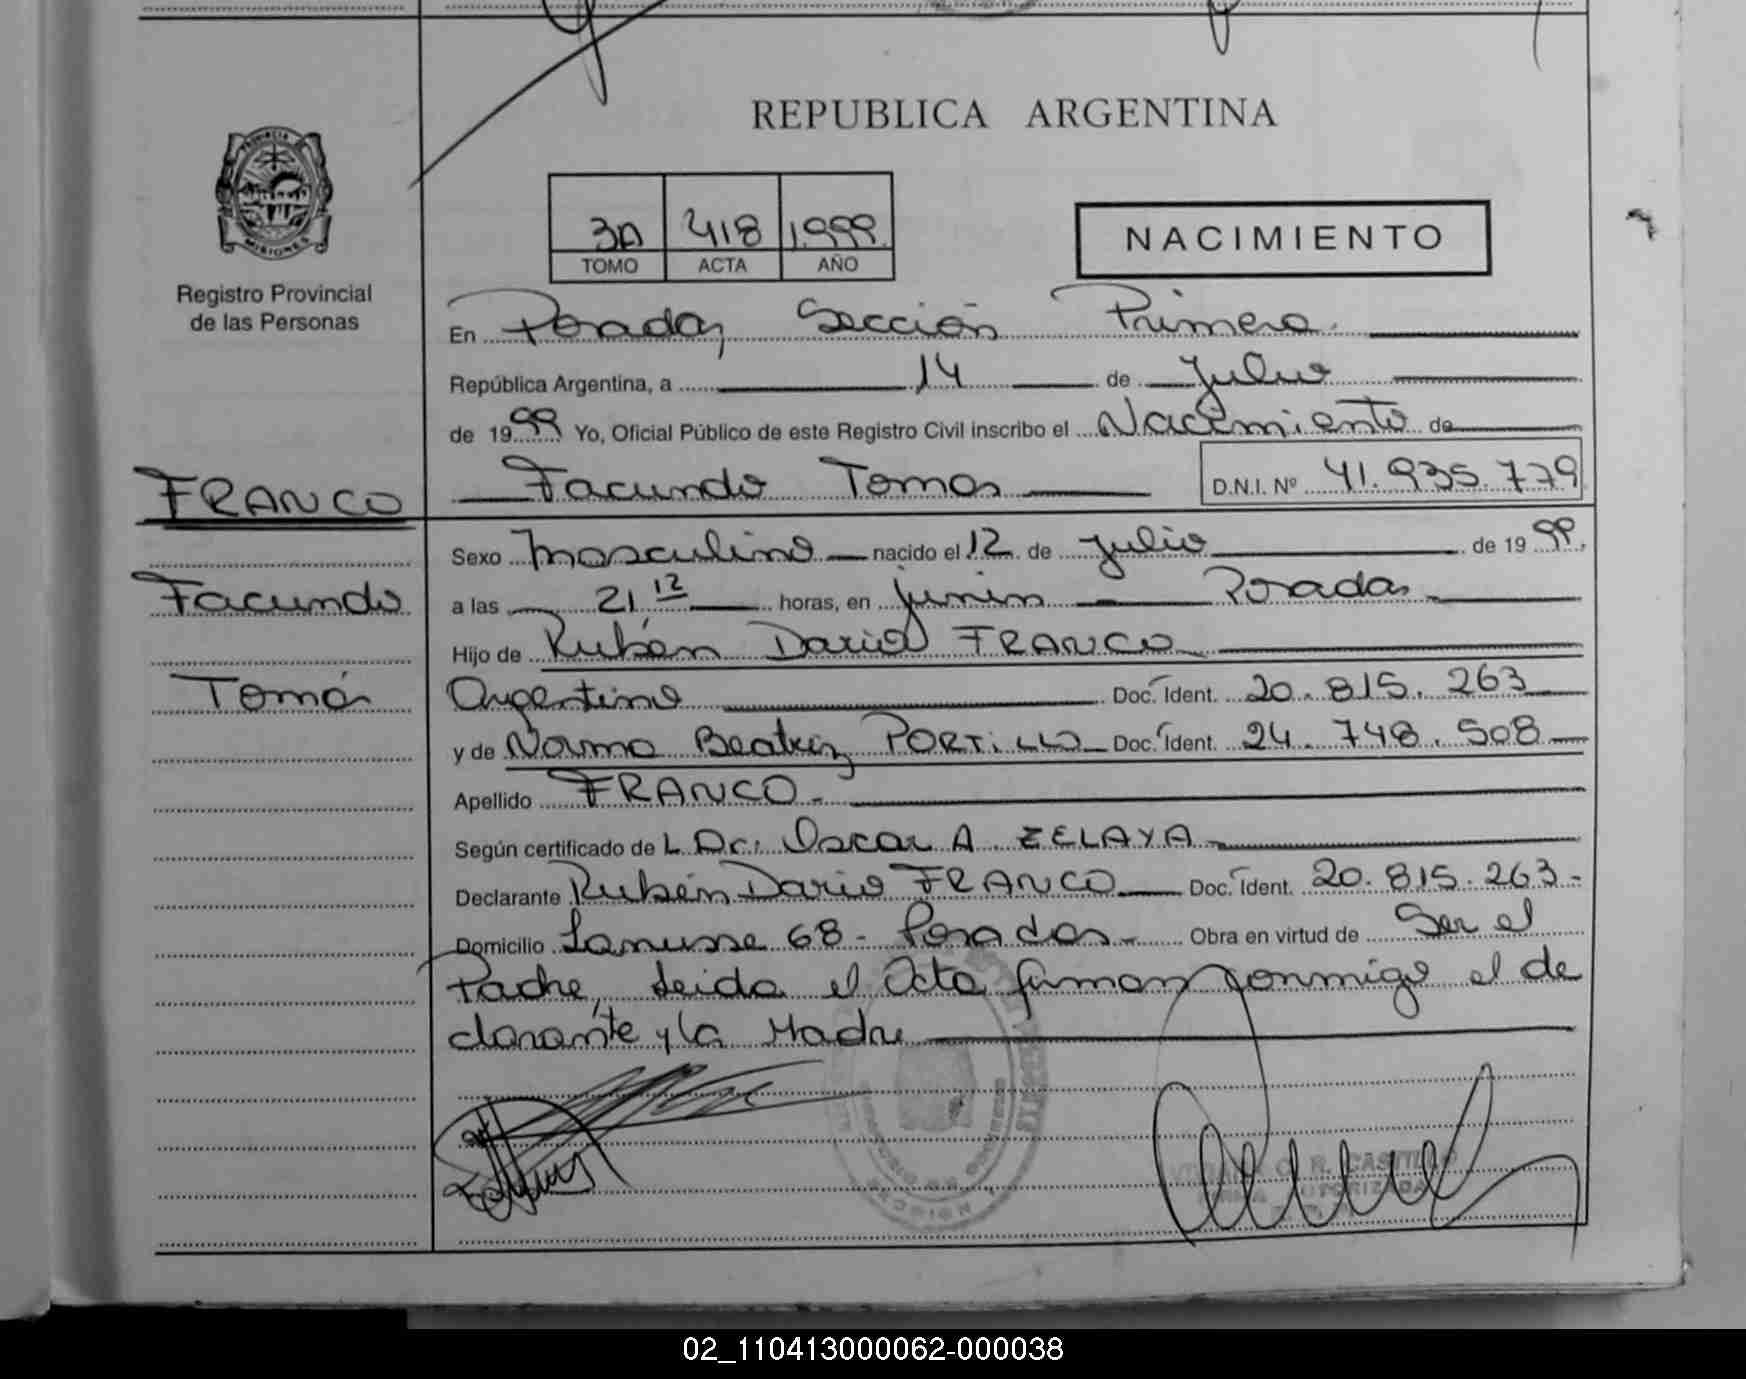 REPUBLICA ARGENTINA
PROVINCIA DE
MISIONES
Registro Provincial
de las Personas
3A 418 1.999.
TOMO ACTA AÑO
NACIMIENTO
En Posadas, Sección Primera.
República Argentina, a 14 de Julio
de 1999 Yo, Oficial Público de este Registro Civil inscribo el Nacimiento de
FRANCO
Facundo Tomas D.N.I. Nº 41.935.779
Sexo Masculino nacido el 12 de Julio de 1999.
Facundo
a las 21 12 horas, en Junin Posadas
Hijo de Rubén Dario FRANCO
Tomás
Argentino Doc. Ident. 20.815.263
y de Norma Beatriz PORTILLO Doc. Ident. 24.748.508
Apellido FRANCO.
Según certificado de L Dr. Oscar A ZELAYA
Declarante Rubén Dario FRANCO Doc. Ident. 20.815.263-
Domicilio Lanusse 68 - Posadas- Obra en virtud de Ser el
Padre, Leida el Acta firman conmigo el de
clarante y la Madre
R. CASTILLO
AUTORIZADA
02_110413000062-000038